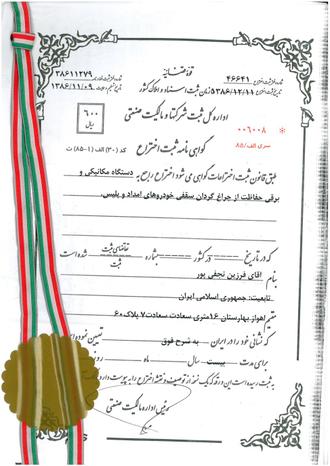 قوه قضائیه
شماره ثبت اختراع: ۴۶۶۴۱
۳۸۶۱۱۲۷۹
تاریخ ثبت اختراع: ۱۳۸۶/۱۲/۱۱
سازمان ثبت اسناد و املاک کشور
۱۳۸۶/۱۱/۰۹
اداره کل ثبت شرکتها و مالکیت صنعتی
۶۰۰
ریال
۰۰۶۰۰۸
سری الف/۸۵
گواهی نامه ثبت اختراع
کد (۳۰) الف (۱-۸۵) ث
طبق قانون ثبت اختراعات گواهی می شود اختراع راجع به دستگاه مکانیکی و
برقی حفاظت از چراغ گردان سقفی خودروهای امداد و پلیس.
که در تاریخ در کشور بشماره تقاضای ثبت شده است
ثبت
بنام آقای فرزین نجفی پور
تابعیت: جمهوری اسلامی ایران
مقیم اهواز بهارستان ۱۶متری سعادت سعادت۷ پلاک۶۰
که نشانی خود را در ایران به شرح فوق تعیین نموده
برای مدت بیست سال ماه روز
به ثبت رسیده است این ورقه که یک نسخه از توصیف و نقشه اختراع را به پیوست دارد
رئیس اداره مالکیت صنعتی